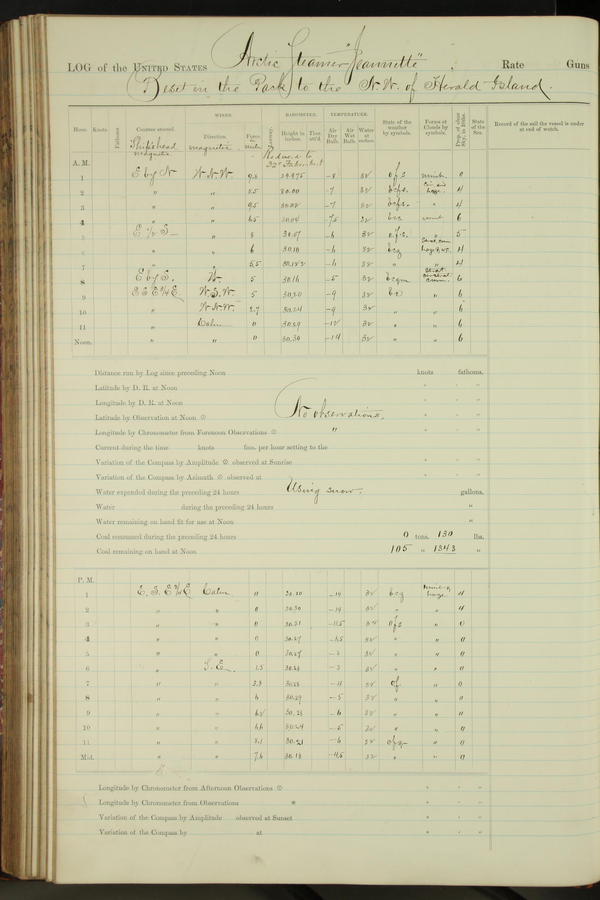 LOG of the UNITED STATES Arctic Steamer "Jeannette", Rate Guns
Beset in the Pack to the N.W. of Herald Island.
Hour. Knots. Fathoms. Courses steered. WINDS. Direction. Force. Leeway. BAROMETER. Height in inches. Ther. att'd. TEMPERATURE. Air Dry Bulb. Air Wet Bulb. Water at surface. State of the weather by symbols. Forms of Clouds by symbols. Prop. of clear Sky, in 10ths. State of the Sea. Record of the sail the vessel is under at end of watch.
Ship's head magnetic. magnetic. miles Reduced to 32° Fahrenheit
A. M.
1 E by N W.N.W. 9.5 29.975 -8 32 o.f.s. nimb. 0
2 " " 30.00 -7 32 4
3 " " 9.5 -7 32 " 4
4 " " 6.5 30.04 32 6
5 " 8 30.07 -6 32 5
6 " " 6 30.18 -6 32 bcz 4
7 " " 5.5 -6 32 " " 4
8 E by S. W. 5 30.16 -5 32 6
9 W.S.W. 5 30.20 -9 32 " 6
10 " W.N.W. 2.7 30.24 -9 32 " " 6
11 " Calm 0 30.29 -12 32 " " 6
Noon. " " 0 30.30 -14 32 " " 6
Distance run by Log since preceding Noon knots fathoms.
Latitude by D. R. at Noon ° ' "
Longitude by D. R. at Noon ° ' "
Latitude by Observation at Noon ☉ No observations. ° ' "
Longitude by Chronometer from Forenoon Observations ☉ " ° ' "
Current during the time knots fms. per hour setting to the
Variation of the Compass by Amplitude ☉ observed at Sunrise ° ' "
Variation of the Compass by Azimuth ☉ observed at ° ' "
Water expended during the preceding 24 hours Using snow. gallons.
Water during the preceding 24 hours "
Water remaining on hand fit for use at Noon "
Coal consumed during the preceding 24 hours 0 tons. 130 lbs.
Coal remaining on hand at Noon 105 " 1343 "
P. M.
1 Calm 0 32 bcz 4
2 " " 0 30.30 32 " " 4
3 " " 0 30.31 o.f.s " 0
4 " " 0 30.27 32 " " 0
5 " " 0 30.27 32 " " 0
6 " S.E. 1.5 32 " " 0
7 " " 3.3 32 of " 0
8 " " 6 30.29 -5 32 " " 0
9 " " -6 32 " "
10 " " 30.24 -5 32 " " 0
11 " " 8.1 30.21 -6 32 " 0
Mid. " " 7.6 30.18 -4.5 32 " " 0
Longitude by Chronometer from Afternoon Observations ☉ ° ' "
Longitude by Chronometer from Observations * ° ' "
Variation of the Compass by Amplitude observed at Sunset ° ' "
Variation of the Compass by at ° ' "